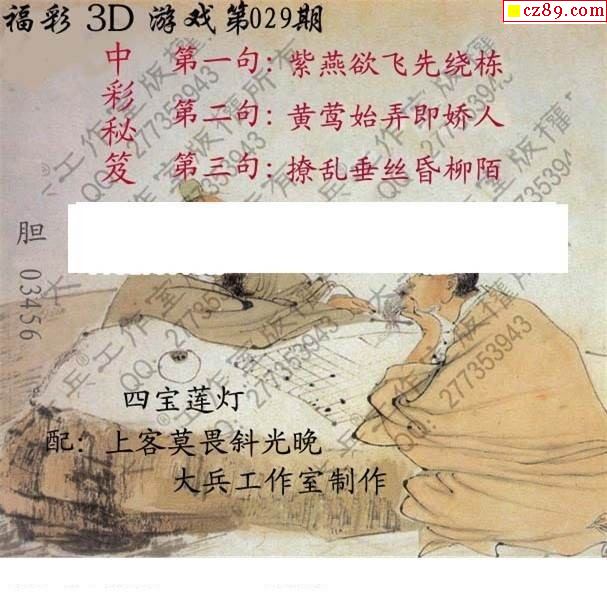 cz89.com
福彩 3D 游戏第029期
中彩秘笈
第一句：紫燕欲飞先绕栋
第二句：黄莺始弄即娇人
第三句：撩乱垂丝昏柳陌
胆 03456
四宝莲灯
配：上客莫畏斜光晚
大兵工作室制作
大兵®工作室版權所有
QQ：277353943